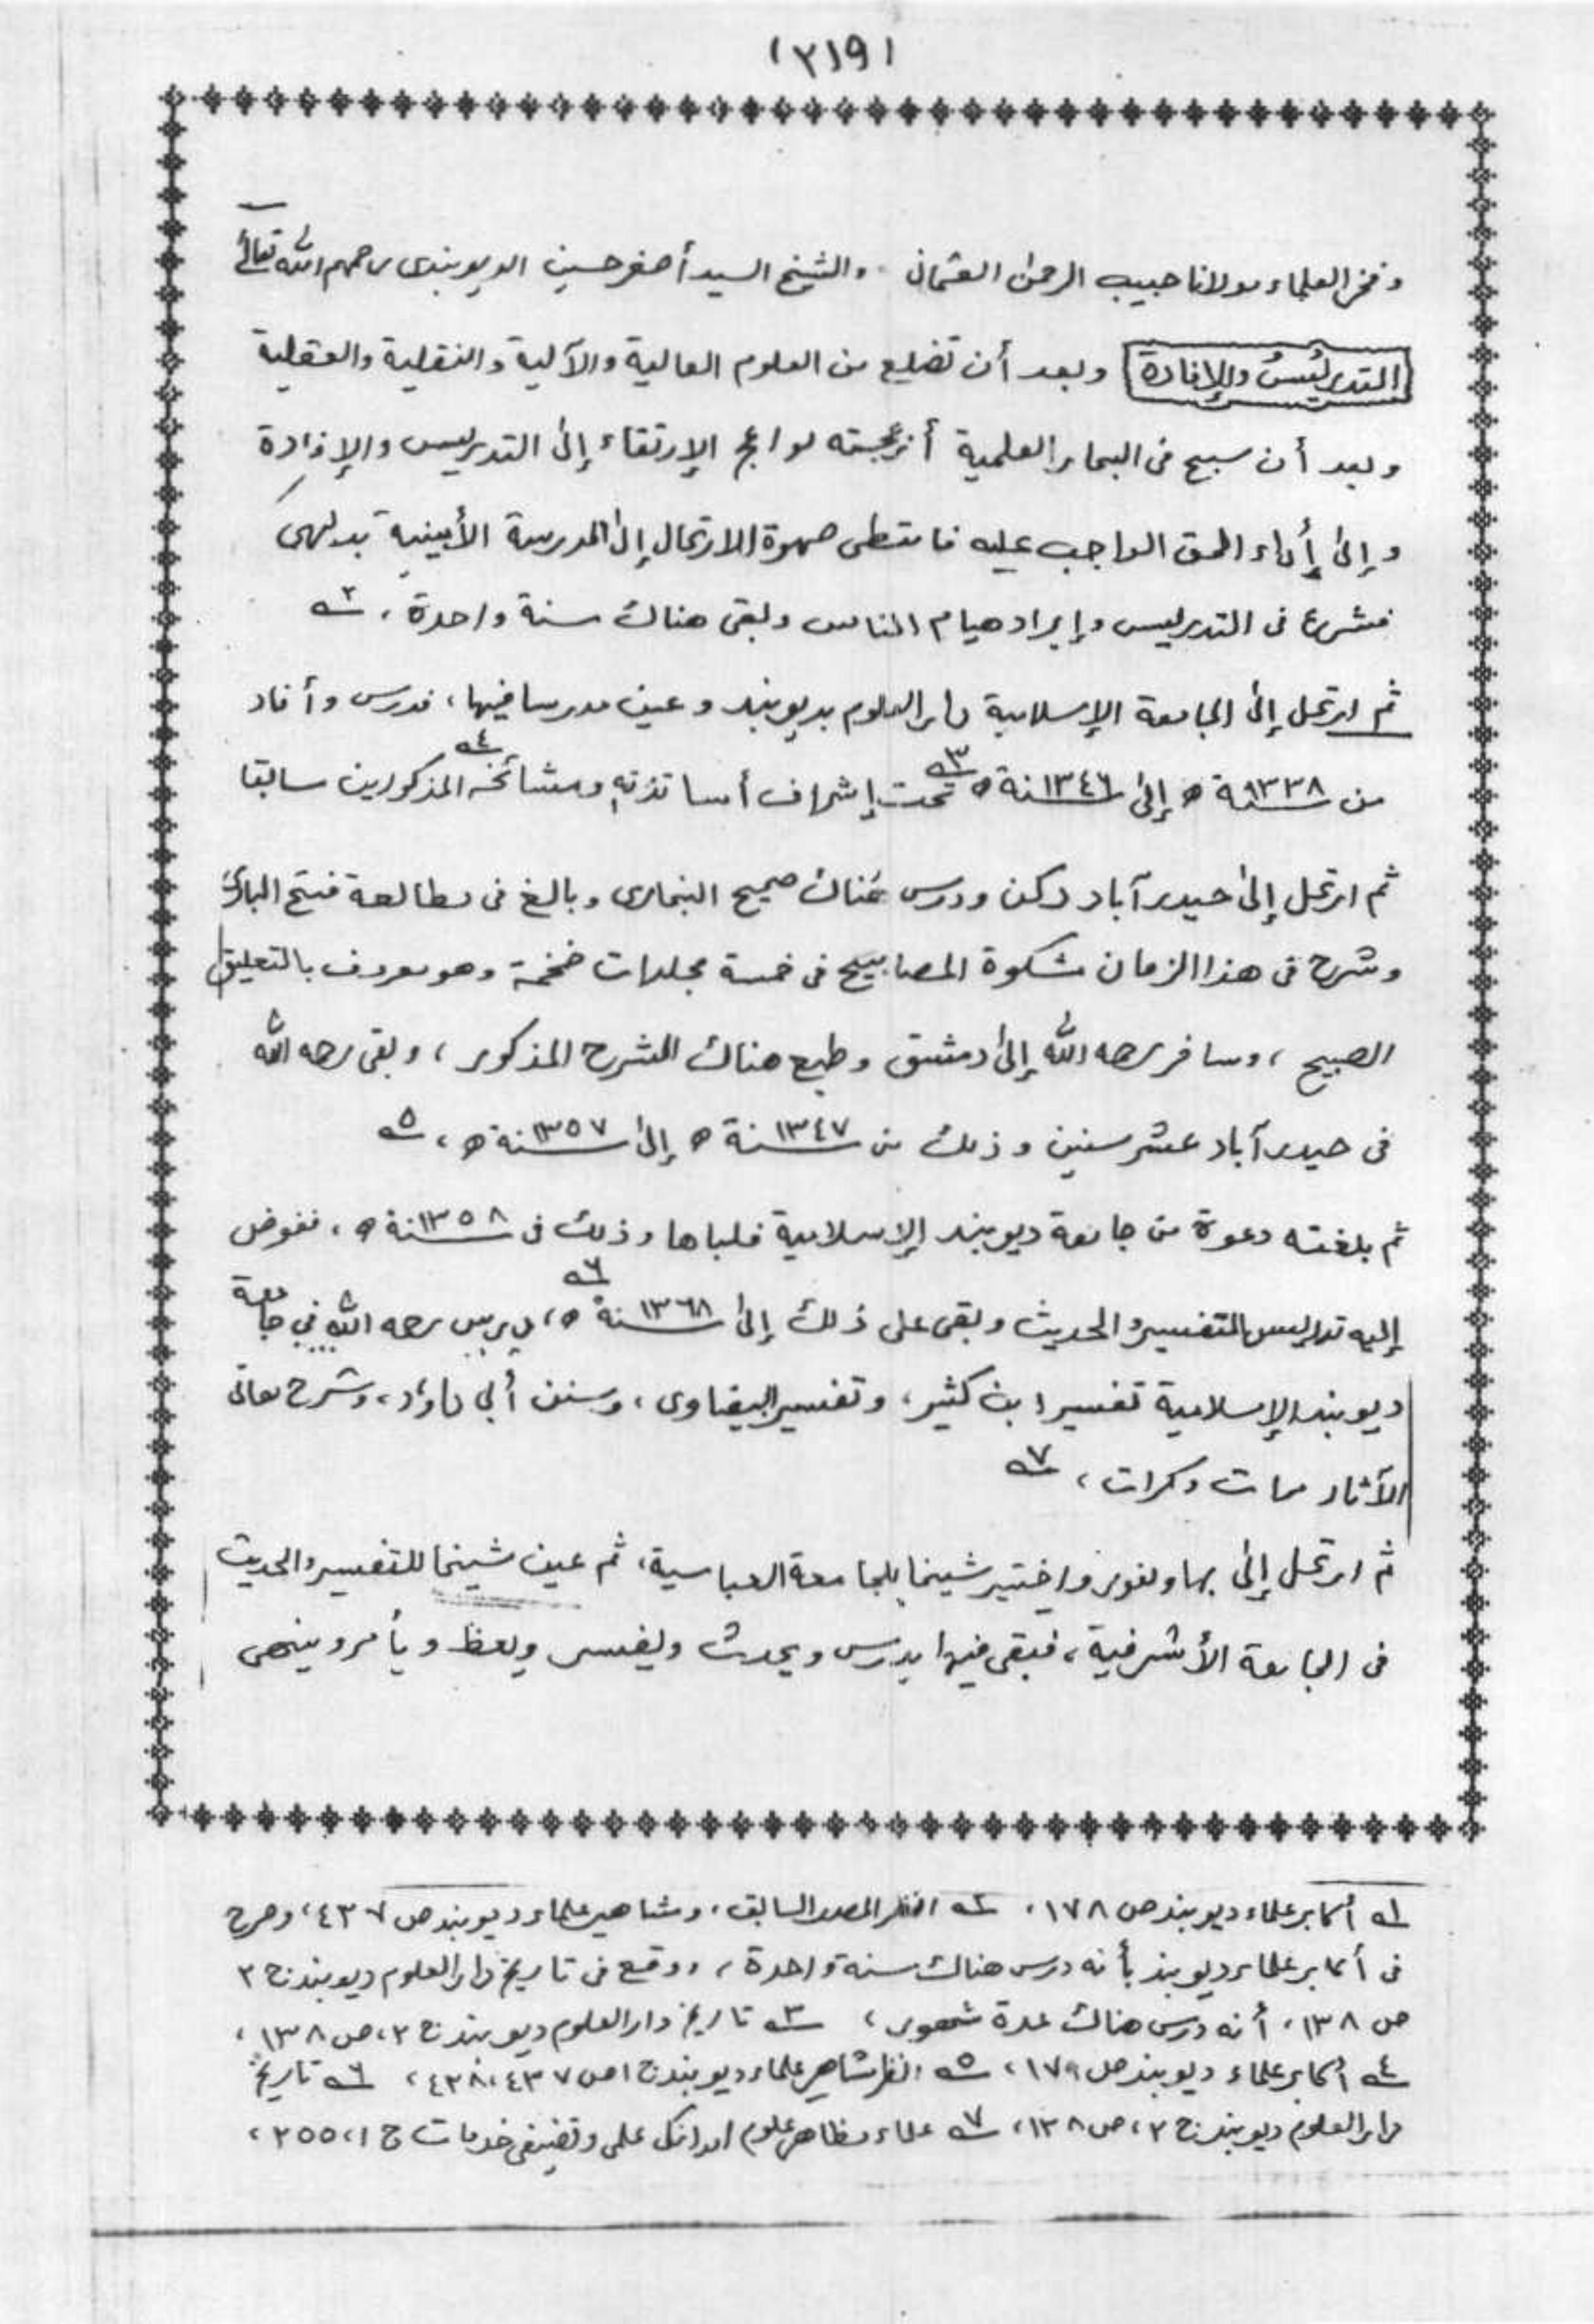 (٢١٩)
وفخر العلماء مولانا حبيب الرحمن العثماني . والشيخ السيد أصغر حسين الديوبندى رحمهم الله تعالىٰ
التدريسُ والإفادة وبعد أن تضلع من العلوم العالية والآلية والنقلية والعقلية
وبعد أن سبح فى البحار العلمية أزعجته لواعج الإرتقاء إلى التدريس والإفادة
وإلىٰ إٔداء الحق الواجب عليه فامتطى صهوة الارتحال إلى المدرسة الأمينية بدلهى
فشرع فى التدريس وإيراد هيام الناس وبقى هناك سنة واحدة، ٢ـه
ثم ارتحل إلى الجامعة الإسلامية دار العلوم بديوبند وعين مدرسا فيها، فدرس وأفاد
من سنة ١٣٣٨ه إلىٰ سنة ١٣٤٦ه ٣ـه تحت إشراف أساتذته ومشائخه ٤ـه المذكورين سابقا
ثم ارتحل إلىٰ حيدر آباد دكن ودرس هناك صحيح البخارى وبالغ فى مطالعة فتح البارى
وشرح فى هذا الزمان مشكوة المصابيح فى خمسة مجلدات ضخمة وهو معروف بالتعليق
الصبيح ، وسافر رحمه الله إلىٰ دمشق وطبع هناك الشرح المذكور ، وبقى رحمه الله
فى حيدر آباد عشر سنين وذلك من سنة ١٣٤٧ه إلىٰ سنة ١٣٥٧ه ، ٥ـه
ثم بلغته دعوة من جامعة ديوبند الإسلامية فلباها وذلك فى سنة ١٣٥٨ه ، ففوض
إليه تدريس التفسير والحديث وبقى على ذلك إلىٰ سنة ١٣٦٨ه ٦ـه، يدرس رحمه الله في جامعة
ديوبند الإسلامية تفسير ابن كثير، وتفسير البيضاوى، وسنن أبي داؤد، وشرح معانى
الآثار مرات وكرات ، ٧ـه
ثم ارتحل إلىٰ بهاولفور واختير شيخا بالجامعة العباسية، ثم عين شيخا للتفسير والحديث
فى الجامعة الأشرفية، فبقى فيها يدرس ويحدث ويفسر ويعظ ويأمر وينهى
١ـه أكابر علماء ديوبند ص ١٧٨ ، ٢ـه انظر المصدر السابق، ومشاهير علماء ديوبند ص ٤٣٧، وصرح
فى أكابر علماء ديوبند بأنه درس هناك سنة واحدة ، ووقع فى تاريخ دار العلوم ديوبند ج ٢
ص ١٣٨ ، أنه درس هناك عدة شهور ، ٣ـه تاريخ دار العلوم ديوبند ج ٢، ص ١٣٨ ،
٤ـه أكابر علماء ديوبند ص ١٧٩ ، ٥ـه انظر مشاهير علماء ديوبند ج ١ ص ٤٣٧، ٤٣٨ ، ٦ـه تاريخ
دار العلوم ديوبند ج ٢، ص ١٣٨ ، ٧ـه علماء مظاهر علوم اور انكى علمى وتصنيفى خدمات ج ١، ٢٥٥ ،